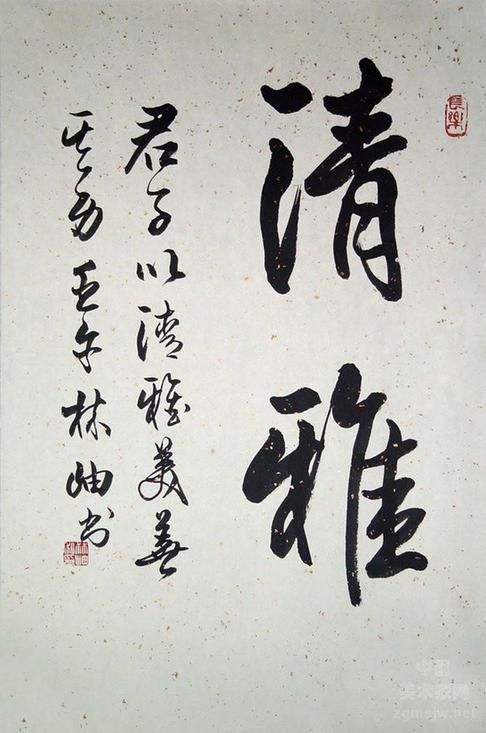 長樂
清雅
君子以清雅美善
其身壬午林岫书
中国
美术家网
zgmsjw.net